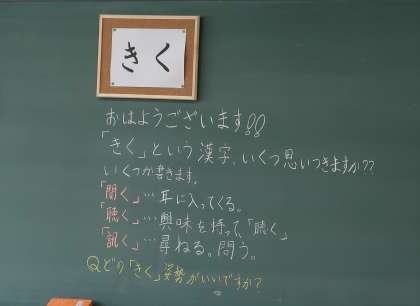 きく
おはようございます!!
「きく」という漢字、いくつ思いつきますか??
いくつか書きます。
「聞く」…耳に入ってくる。
「聴く」…興味を持って、「聴く」
「訊く」…尋ねる。問う。
Qどの「きく」姿勢がいいですか?